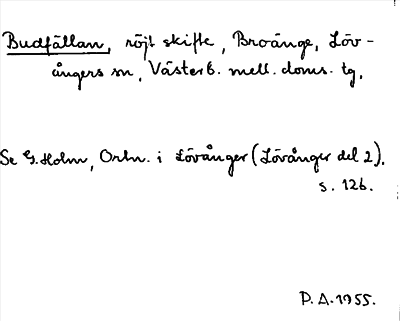 Budfällan, röjt skifte, Broänge, Löv-
ångers sn, Västerb. mell. doms. tg.
Se G. Holm, Ortn. i Lövånger (Lövånger del 2).
s. 126.
P. A. 1955.